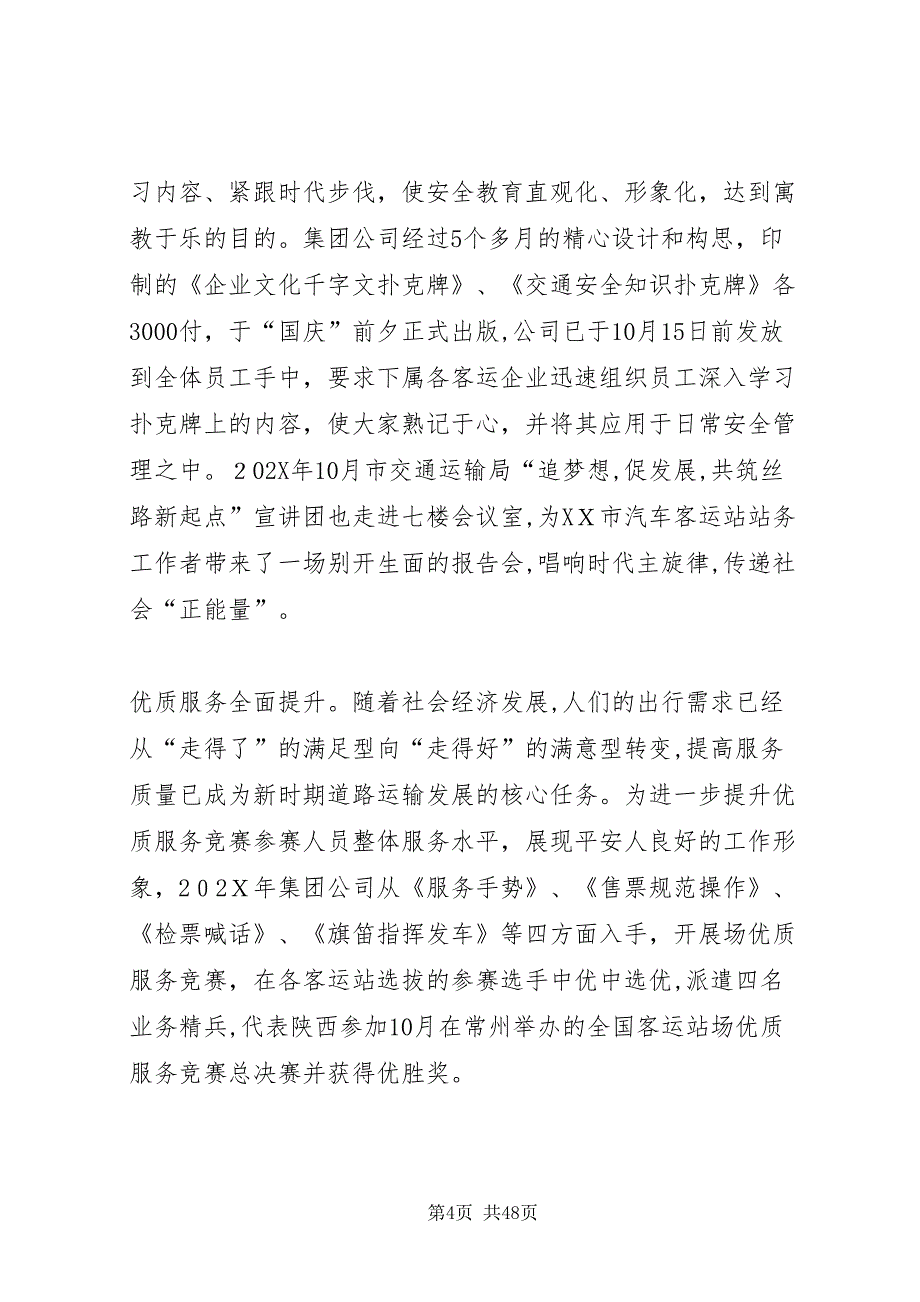 习内容、紧跟时代步伐，使安全教育直观化、形象化，达到寓
教于乐的目的。集团公司经过5个多月的精心设计和构思，印
制的《企业文化千字文扑克牌》、《交通安全知识扑克牌》各
3000付，于“国庆”前夕正式出版,公司已于10月15日前发放
到全体员工手中，要求下属各客运企业迅速组织员工深入学习
扑克牌上的内容，使大家熟记于心，并将其应用于日常安全管
理之中。２02X年10月市交通运输局“追梦想,促发展,共筑丝
路新起点”宣讲团也走进七楼会议室,为XＸ市汽车客运站站务
工作者带来了一场别开生面的报告会,唱响时代主旋律,传递社
会“正能量”。
优质服务全面提升。随着社会经济发展,人们的出行需求已经
从“走得了”的满足型向“走得好”的满意型转变,提高服务
质量已成为新时期道路运输发展的核心任务。为进一步提升优
质服务竞赛参赛人员整体服务水平，展现平安人良好的工作形
象，２０２Ｘ年集团公司从《服务手势》、《售票规范操作》、
《检票喊话》、《旗笛指挥发车》等四方面入手，开展场优质
服务竞赛，在各客运站选拔的参赛选手中优中选优,派遣四名
业务精兵,代表陕西参加10月在常州举办的全国客运站场优质
服务竞赛总决赛并获得优胜奖。
第4页 共48页